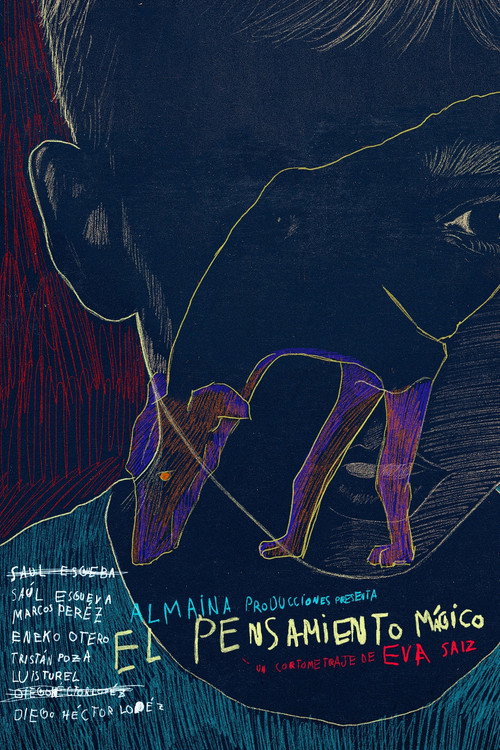 SAUL ESGUEBA
SAÚL ESGUEVA
MARCOS PÉREZ
ENEKO OTERO
TRISTÁN POZA
LUIS TUREL
DIEGO HÉCTOR LOPÉZ
ALMAINA PRODUCCIONES PRESENTA
EL PENSAMIENTO MÁGICO
UN CORTOMETRAJE DE EVA SAIZ